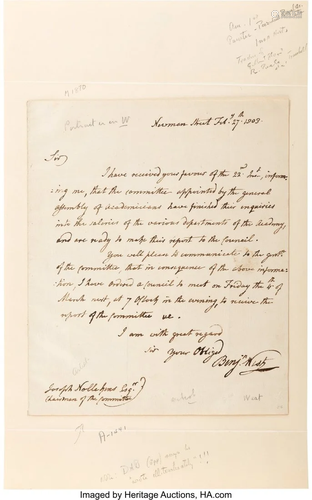 Portrait in our W
Newman Street Feb.y 27th 1809
Sir
I have received your favour of the 22d Inst, inform-
ing me, that the committee appointed by the general
assembly of academicians have finished their enquiries
into the salaries of the various departments of the academy,
and are ready to make their report to the council.
You will please to communicate to the gent.n
of the committee, that in consequence of the above informa-
tion, I have ordered a council to meet on Friday the
March next, at 7 O'Clock in the evening, to receive the
report of the committee &c.
I am with great regard
Sir Your Obliged
Benj.n West
Joseph Nollekens Esq.r
Chairman of the Committee
West
Imaged by Heritage Auctions, HA.com